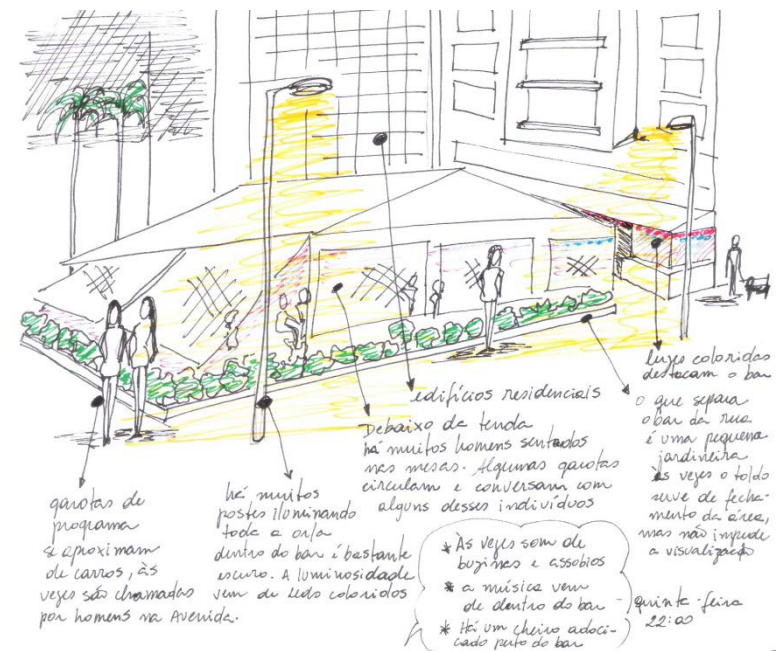 garotas de
programa
se aproximam
de carros, às
vezes são chamadas
por homens na Avenida.
há muitos
postes iluminando
toda a orla
dentro do bar é bastante
escuro. A luminosidade
vem de leds coloridos
Debaixo da tenda
há muitos homens sentados
nas mesas. Algumas garotas
circulam e conversam com
alguns desses indivíduos
edifícios residenciais
luzes coloridas
destacam o bar
o que separa
o bar da rua
é uma pequena
jardineira
às vezes o toldo
serve de fecha-
mento da área,
mas não impede
a visualização
* Às vezes som de
buzinas e assobios
* a música vem
de dentro do bar
* Há um cheiro adoci-
cado perto do bar
quinta-feira
22:00